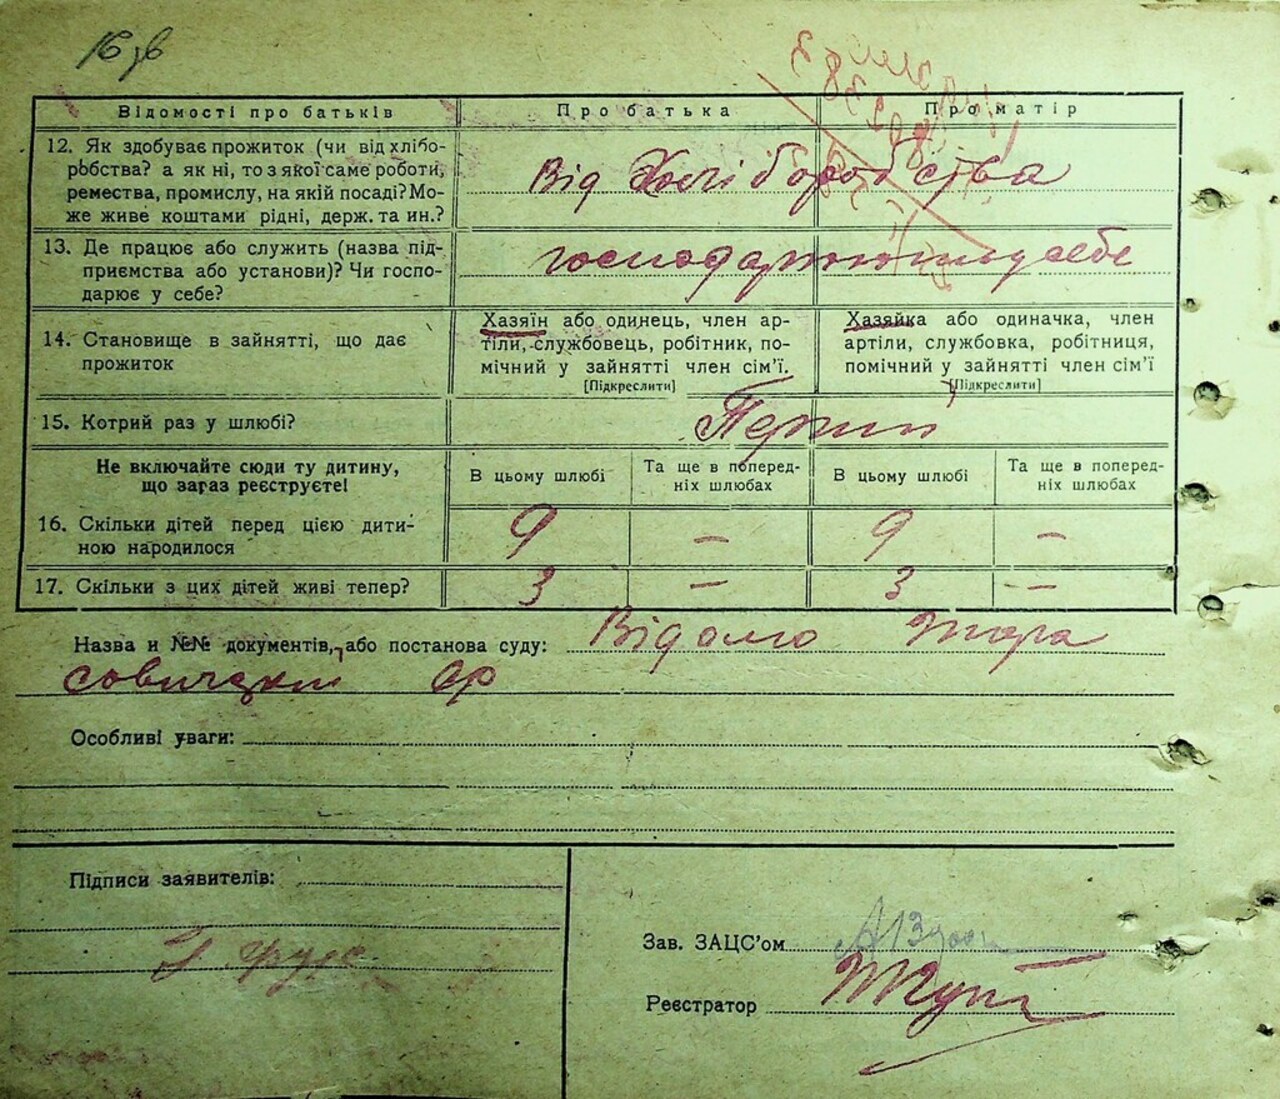 16 зв
Відомості про батьків
Про батька
Про матір
12. Як здобуває прожиток (чи від хлібо-
робства? а як ні, то з якої саме роботи,
ремества, промислу, на якій посаді? Мо-
же живе коштами рідні, держ. та ин.?
Від Хлібороб ства
13. Де працює або служить (назва під-
приємства або установи)? Чи госпо-
дарює у себе?
господарюють у себе
14. Становище в зайнятті, що дає
прожиток
Хазяїн або одинець, член ар-
тіли, службовець, робітник, по-
мічний у зайнятті член сім’ї.
[Підкреслити]
Хазяйка або одиначка, член
артіли, службовка, робітниця,
помічний у зайнятті член сім’ї
[Підкреслити]
15. Котрий раз у шлюбі?
Перший
Не включайте сюди ту дитину,
що зараз реєструєте!
В цьому шлюбі
Та ще в поперед-
ніх шлюбах
В цьому шлюбі
Та ще в поперед-
ніх шлюбах
16. Скільки дітей перед цією дити-
ною народилося
9 – 9 –
17. Скільки з цих дітей живі тепер?
3 – 3 –
Назва и №№ документів, або постанова суду: Відомо
Особливі уваги:
Підписи заявителів:
Зав. ЗАЦС’ом
Реєстратор